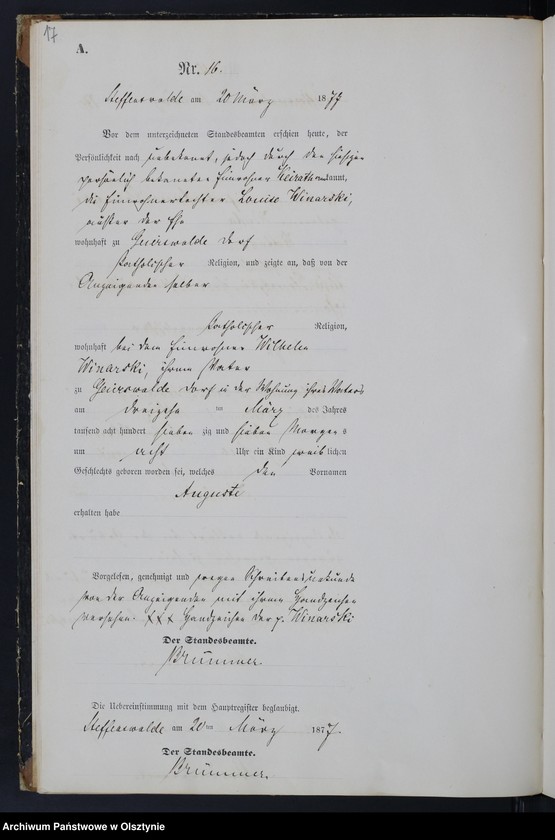 17
A.
Nr. 16.
Steffenswalde am 20 März 1877
Vor dem unterzeichneten Standesbeamten erschien heute, der
Persönlichkeit nach unbekannt, jedoch durch den hiesigen
persönlich bekannten Einwohner kannt,
die Einwohnertochter Louise Winarski,
außer der Ehe
wohnhaft zu Geierswalde Dorf
katholischer Religion, und zeigte an, daß von der
Anzeigenden selber
katholischer Religion,
wohnhaft bei dem Einwohner Wilhelm
Winarski, ihrem Vater
zu Geierswalde Dorf in der Wohnung ihres Vaters
am dreizehn ten März des Jahres
tausend acht hundert sieben zig und sieben Morgens
um acht Uhr ein Kind weiblichen
Geschlechts geboren worden sei, welches den Vornamen
Auguste
erhalten habe
Vorgelesen, genehmigt und wegen Schreibensunkunde
von der Anzeigenden mit ihrem Handzeichen
versehen. XXX Handzeichen der p. Winarski
Der Standesbeamte.
Brümmer.
Die Uebereinstimmung mit dem Hauptregister beglaubigt.
Steffenswalde am 20ten März 1877.
Der Standesbeamte.
Brümmer.
Archiwum Państwowe w Olsztynie